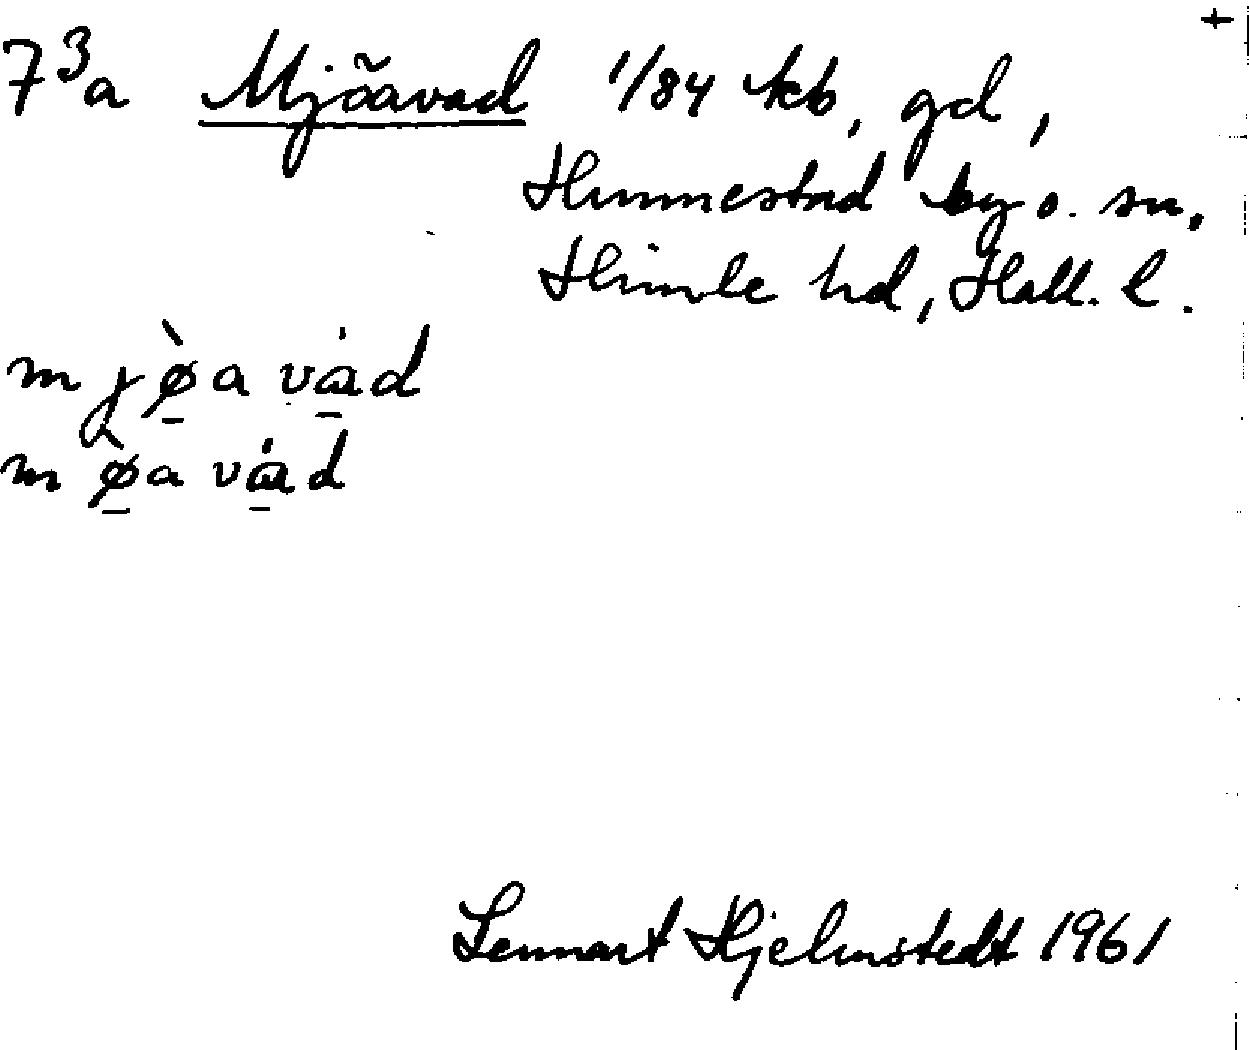 7³a Mjöavad 1/84 kb, gd,
Hunnestad by o. sn,
Himle hd, Hall. l.
mjø̱̀avà̱d
mø̱̀avà̱d
Lennart Hjelmstedt 1961